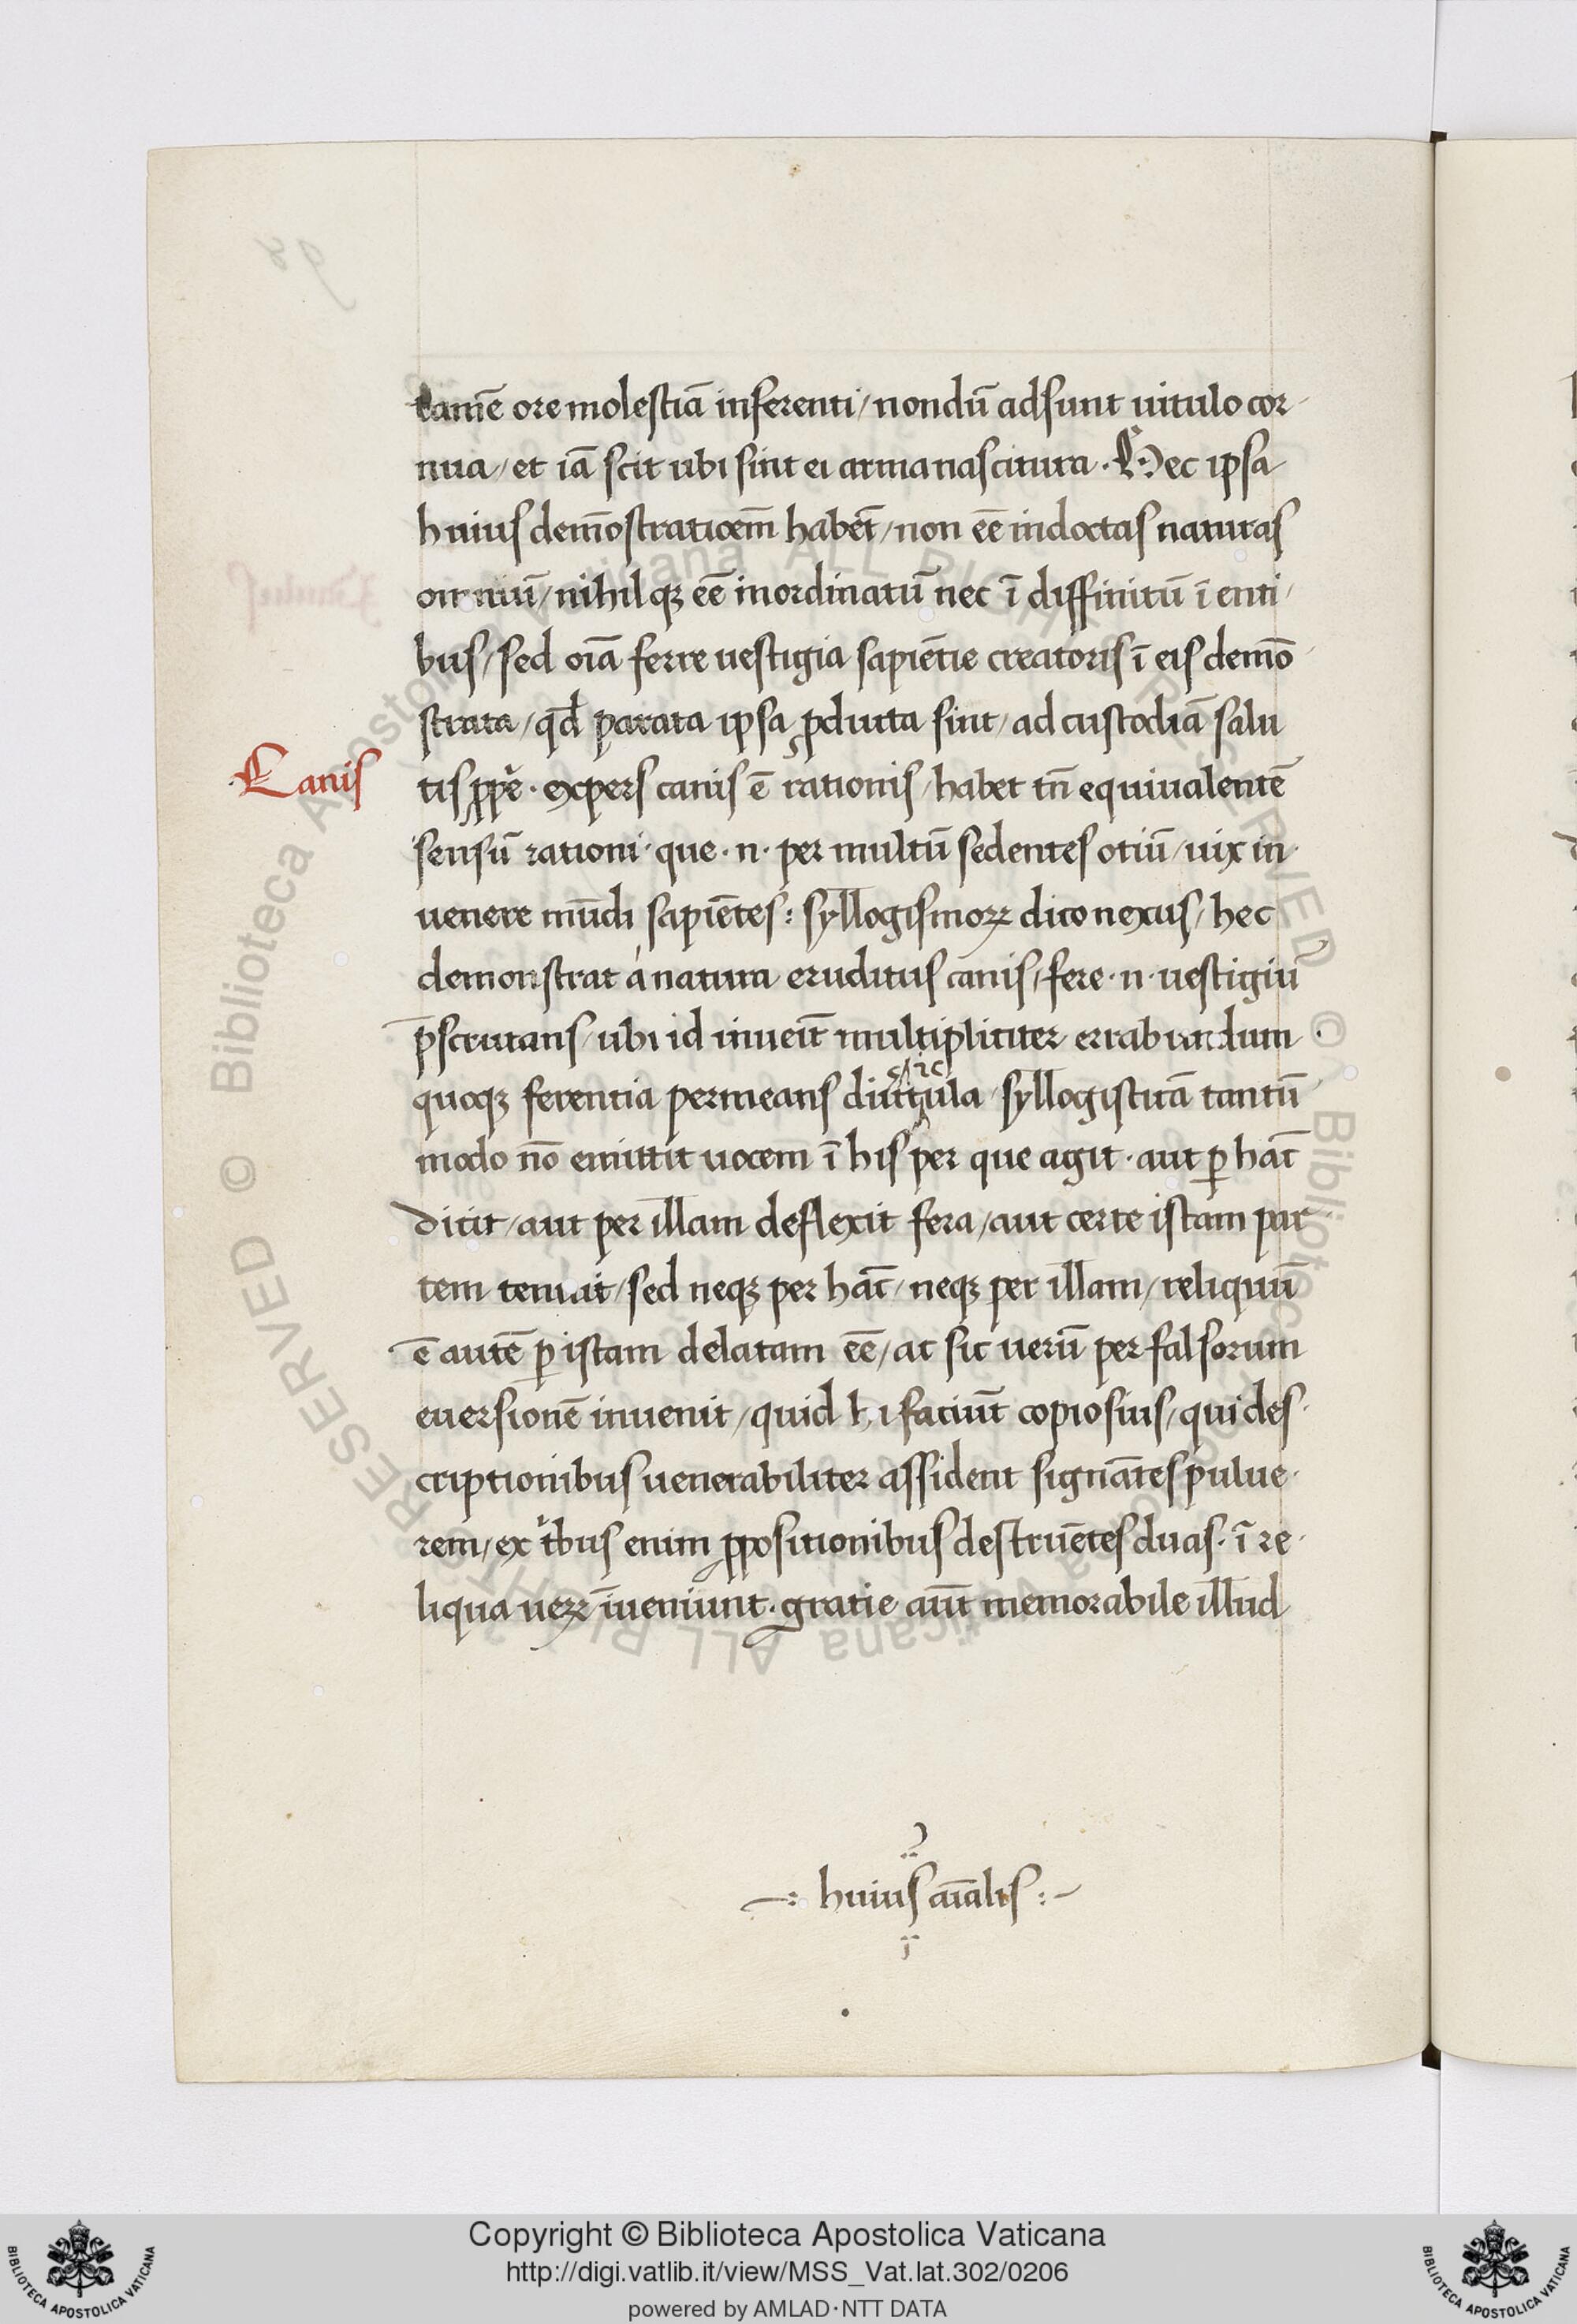 tamē ore molestiā inferenti / nondū adsunt uitulo cor-
nua / et iā scit ubi sint ei arma nascitura · Hec ipsa
huius demōstratioem̄ habēt / non eē indoctas naturas
omniū / nihilqꝫ eē inordinatū nec ī diffinitū ī enti /
bus / sed oīa ferre uestigia sapiētie creatoris ī eis demō
strata / qd̄ parata ipsa ꝓducta sint / ad custodiā salu
Canis
tis ꝓpͥē · expers canis ē rationis / habet tn̄ equiualentē
sensū rationi · que · n · per multū sedentes otiū / uix in-
uenere mūdi sapiētes : syllogismoꝝ dico nexus / hec
demonstrat á natura eruditus canis / fere · n · uestigiū
p̄scrutans / ubi id inueīt multipliciter errabundum ·
quoqꝫ ferentia permeans diuticula / syllogisticā tantū
modo nō emittit uocem ī his per que agit · aut ꝑ hāc
dicit / aut per illam deflexit fera / aut certe istam par
tem tenuit / sed neqꝫ per hāc / neqꝫ per illam / reliquū
ē autē ꝑ istam delatam eē / ac sic uerū per falsorum
euersionē inuenit / quid hi faciūt copiosius / qui des-
criptionibus uenerabiliter assident signātes pulue-
rem / ex tͥbus enim ꝓpositionibus destruētes duas · ī re-
liqua ueꝝ īueniunt · gratie aūt memorabile illud
huius aīalis
Copyright © Biblioteca Apostolica Vaticana
http://digi.vatlib.it/view/MSS_Vat.lat.302/0206
powered by AMLAD·NTT DATA
BIBLIOTECA APOSTOLICA VATICANA
BIBLIOTECA APOSTOLICA VATICANA